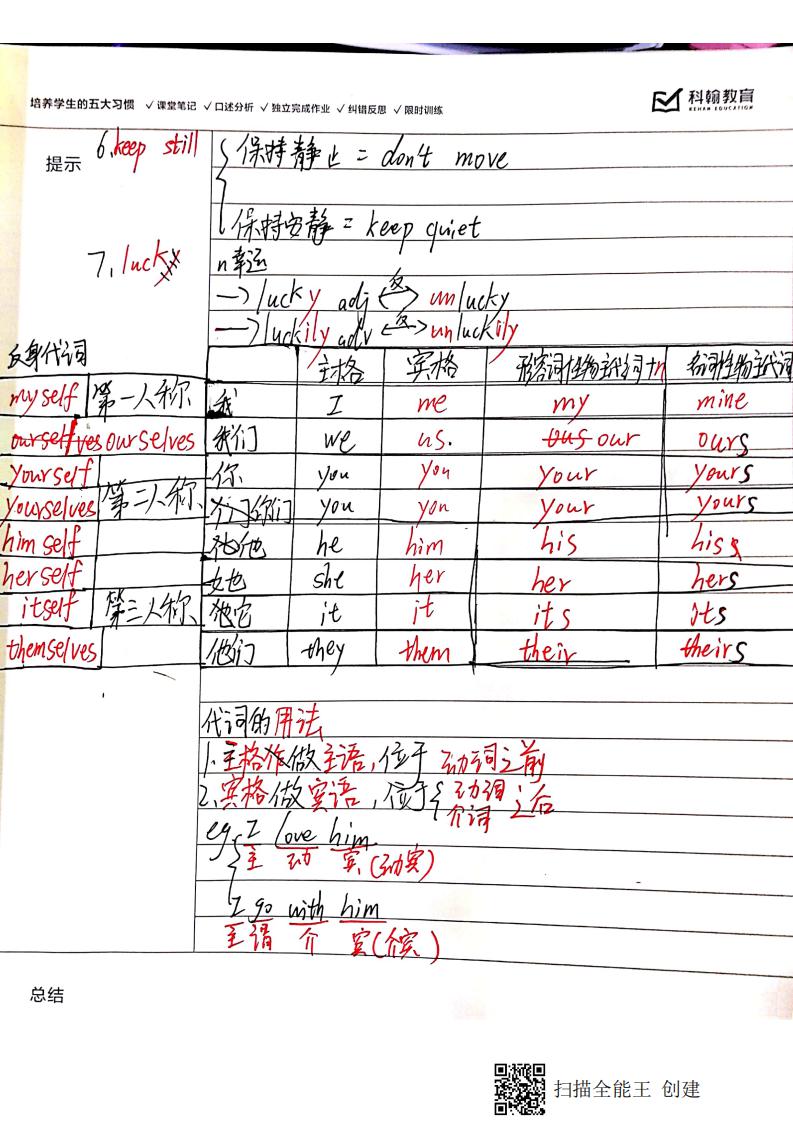 培养学生的五大习惯 ✓课堂笔记 ✓口述分析 ✓独立完成作业 ✓纠错反思 ✓限时训练
科翰教育
KEHAN EDUCATION
提示
6.keep still
保持静止 = don't move
保持安静 = keep quiet
7.luck
n幸运
→lucky adj ←反→ unlucky
→luckily adv ←反→ unluckily
反身代词 主格 宾格 形容词性物主代词+n 名词性物主代词
myself 第一人称 我 I me my mine
ourselves 我们 we us. our ours
yourself 你 you you your yours
yourselves 第二人称 你们 you you your yours
himself 他 he him his his
herself 她 she her her hers
itself 第三人称 它 it it its its
themselves 他们 they them their theirs
代词的用法
1.主格做主语,位于动词之前
2.宾格做宾语,位于{动词 介词 之后
eg I love him
主 动 宾(动宾)
I go with him
主 谓 介 宾(介宾)
总结
扫描全能王 创建